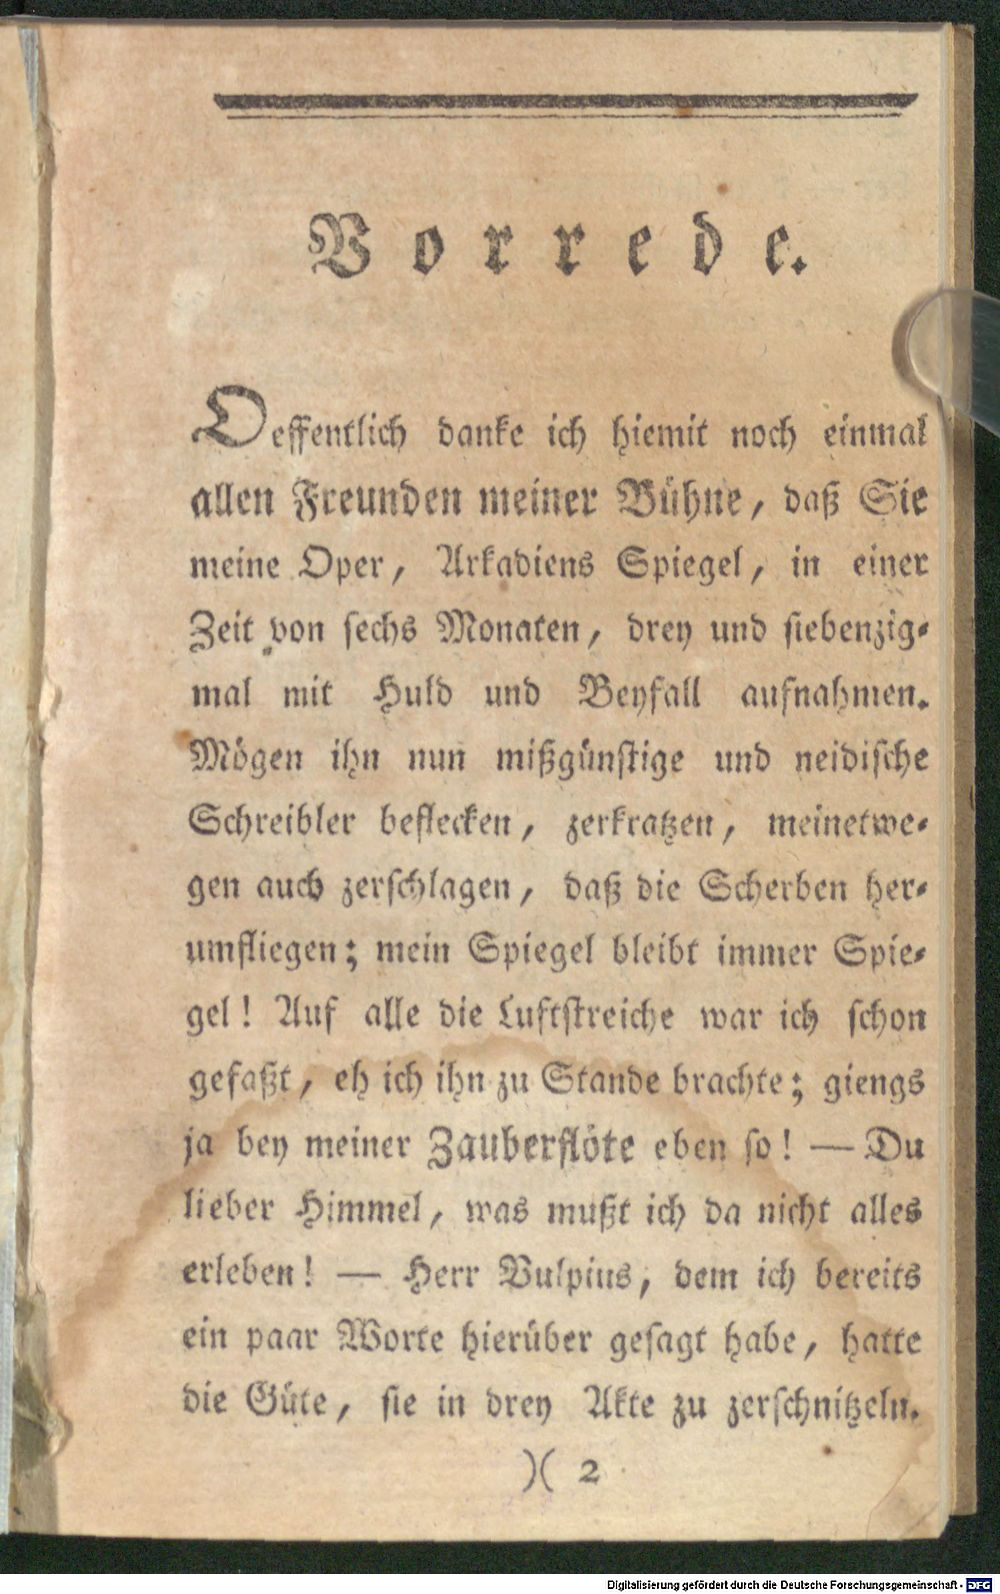 Vorrede.
Oeffentlich danke ich hiemit noch einmal
allen Freunden meiner Bühne, daß Sie
meine Oper, Arkadiens Spiegel, in einer
Zeit von sechs Monaten, drey und siebenzig-
mal mit Huld und Beyfall aufnahmen.
Mögen ihn nun mißgünstige und neidische
Schreibler beflecken, zerkratzen, meinetwe-
gen auch zerschlagen, daß die Scherben her-
umfliegen; mein Spiegel bleibt immer Spie-
gel! Auf alle die Luftstreiche war ich schon
gefaßt, eh ich ihn zu Stande brachte; giengs
ja bey meiner Zauberflöte eben so! — Du
lieber Himmel, was mußt ich da nicht alles
erleben! — Herr Vulpius, dem ich bereits
ein paar Worte hierüber gesagt habe, hatte
die Güte, sie in drey Akte zu zerschnitzeln.
)( 2
Digitalisierung gefördert durch die Deutsche Forschungsgemeinschaft - DFG